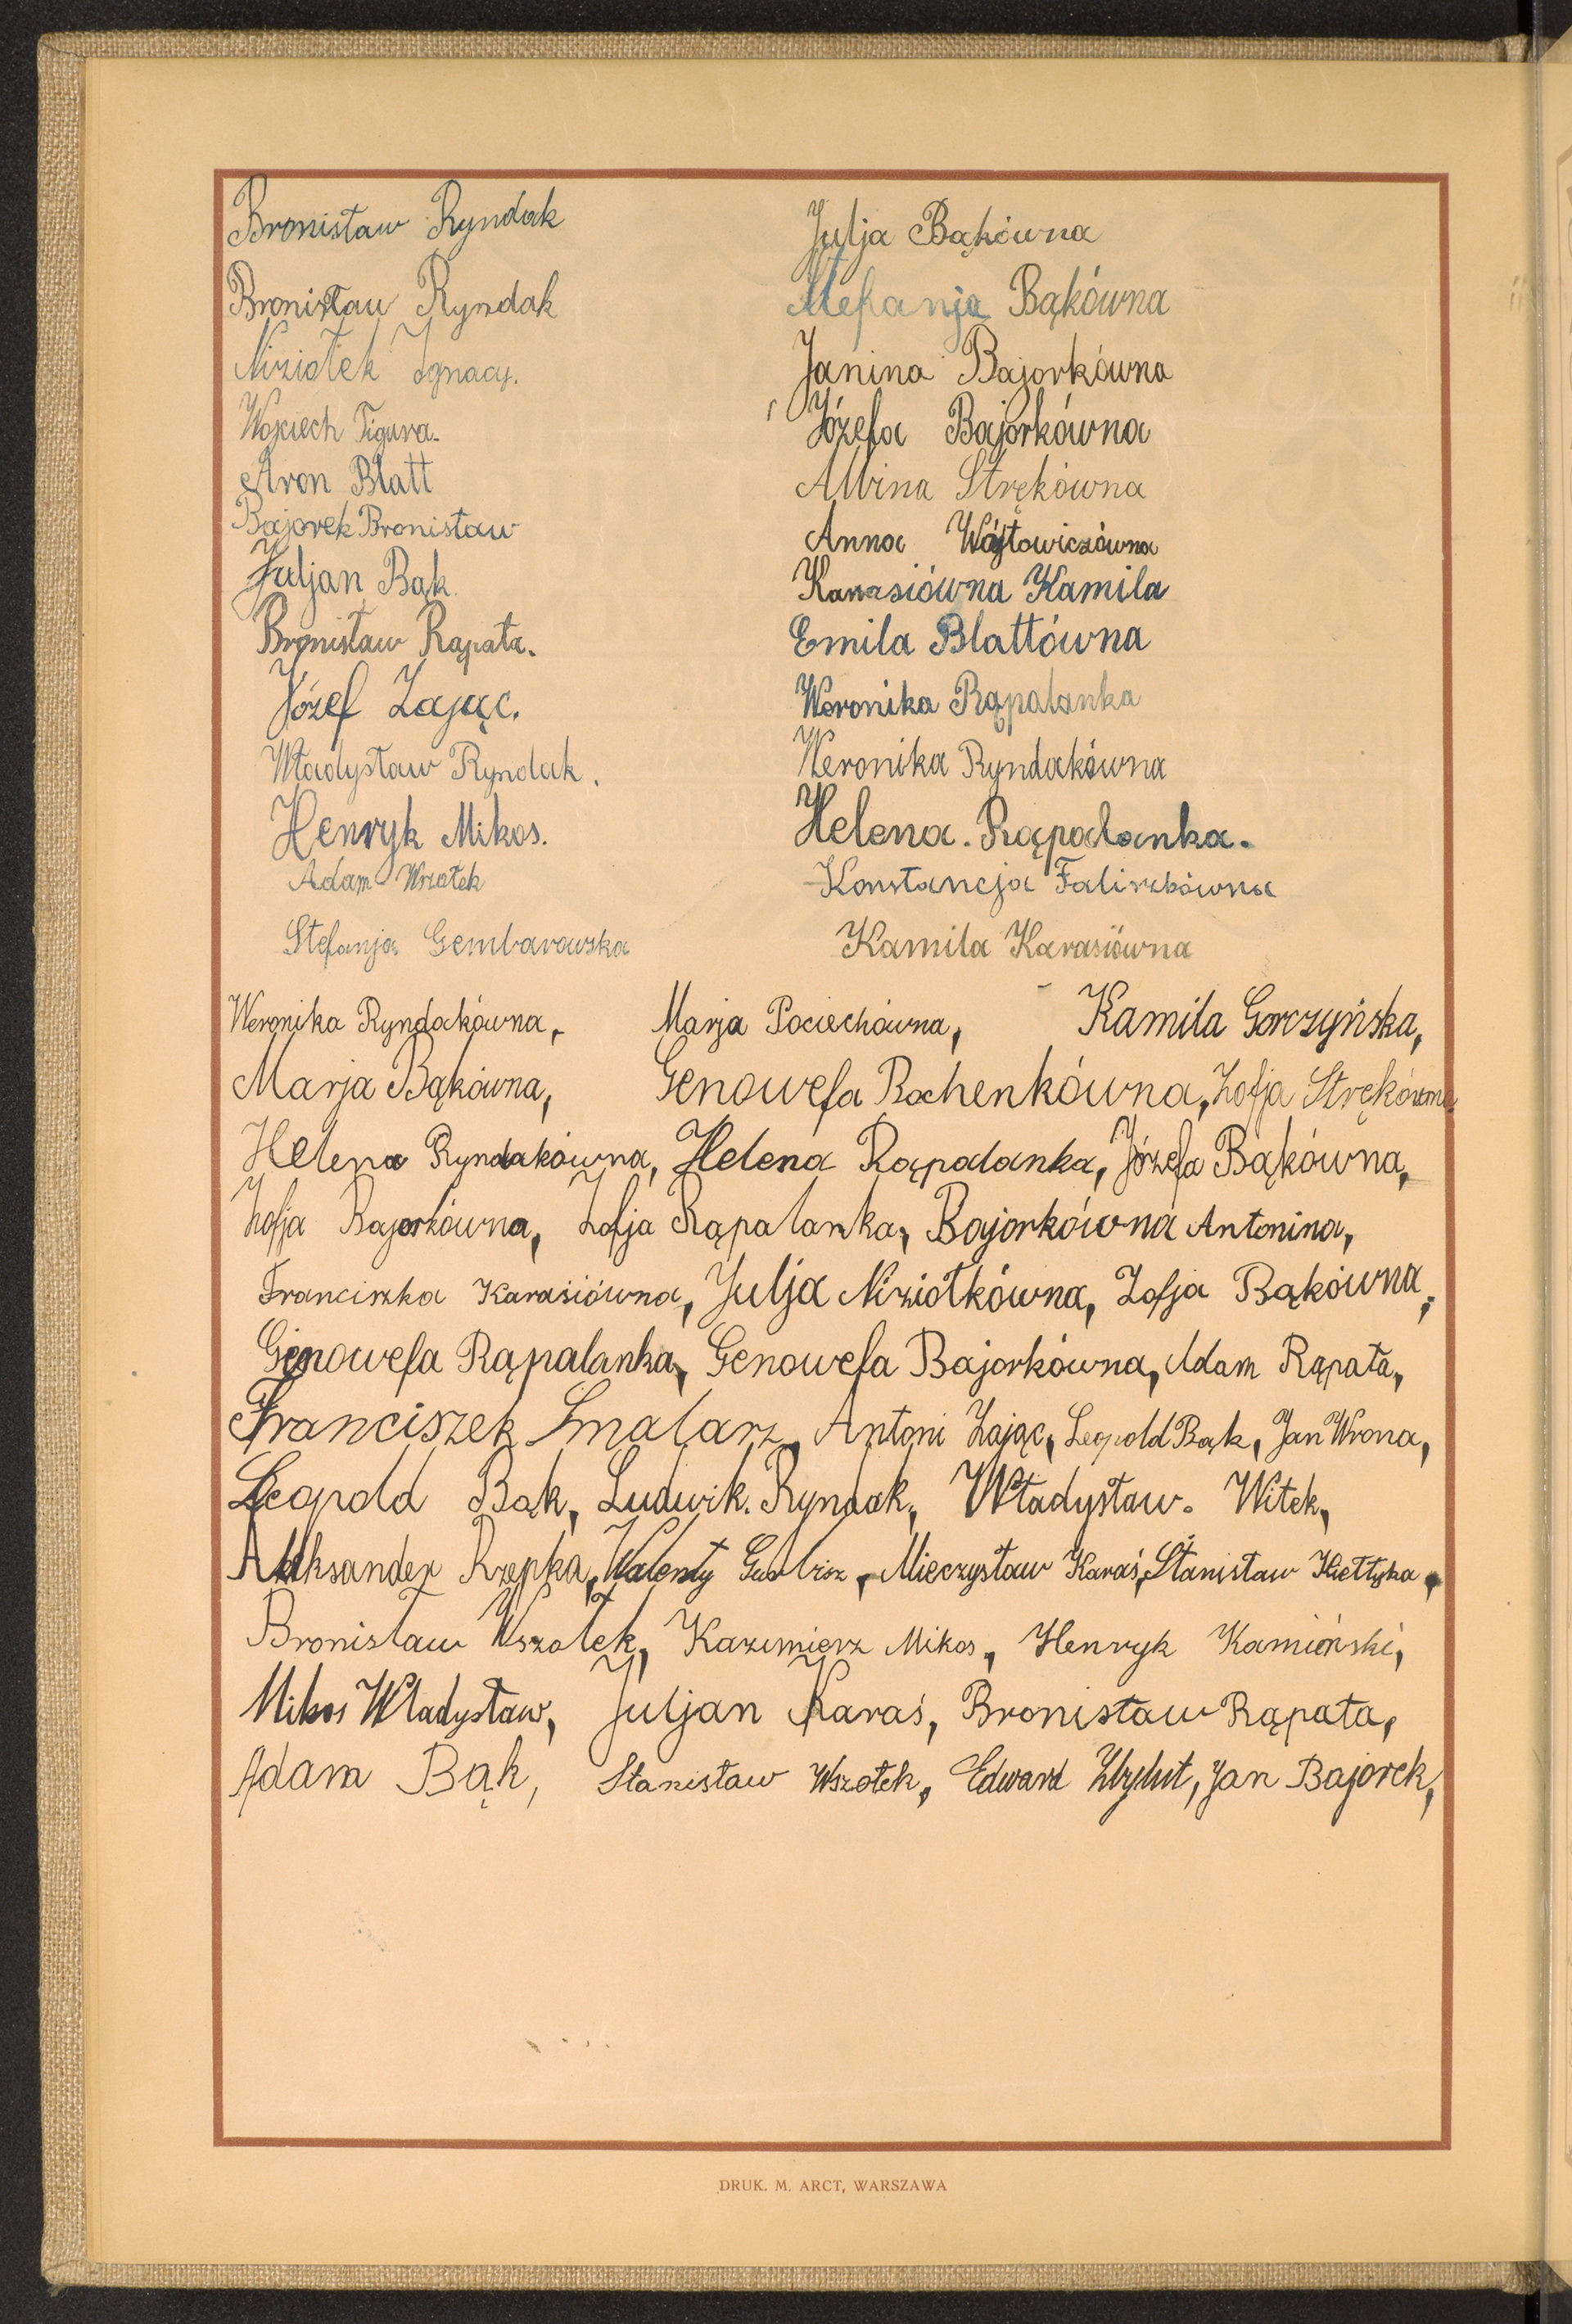 Bronisław Ryndak
Julja Bąkówna
Bronisław Ryndak
Stefanja Bąkówna
Niziołek Ignacy.
Janina Bajorkówna
Wojciech Figura.
Józefa Bajorkówna
Aron Blatt
Albina Strękówna
Bajorek Bronisław
Anna Wójtowiczówna
Juljan Bąk.
Karasiówna Kamila
Bronisław Rąpała.
Emila Blattówna
Józef Zając.
Weronika Rąpalanka
Władysław Ryndak.
Weronika Ryndakówna
Henryk Mikos.
Helena. Rąpalanka.
Adam Wszołek
Konstancja Faliszkówna
Stefanja Gembarowska
Kamila Karasiówna
Weronika Ryndakówna, Marja Pociechówna, Kamila Gorczyńska,
Marja Bąkówna, Genowefa Bochenkówna, Zofja Strękówna
Helena Ryndakówna, Helena Rąpalanka, Józefa Bąkówna,
Zofja Bajorkówna, Zofja Rąpalanka, Bajorkówna Antonina,
Franciszka Karasiówna, Julja Niziołkówna, Zofja Bąkówna,
Genowefa Rąpalanka, Genowefa Bajorkówna, Adam Rąpała,
Franciszek Smalarz, Antoni Zając, Leopold Bąk, Jan Wrona,
Leopold Bąk, Ludwik. Ryndak, Władysław. Witek,
Aleksander Rzepka, Walenty Mieczysław Karaś, Stanisław Kiełtyka,
Bronisław Wszołek, Kazimierz Mikos, Henryk Kamiński,
Mikos Władysław, Juljan Karaś, Bronisław Rąpała,
Adam Bąk, Stanisław Wszołek, Edward Zbylut, Jan Bajorek,
DRUK. M. ARCT, WARSZAWA